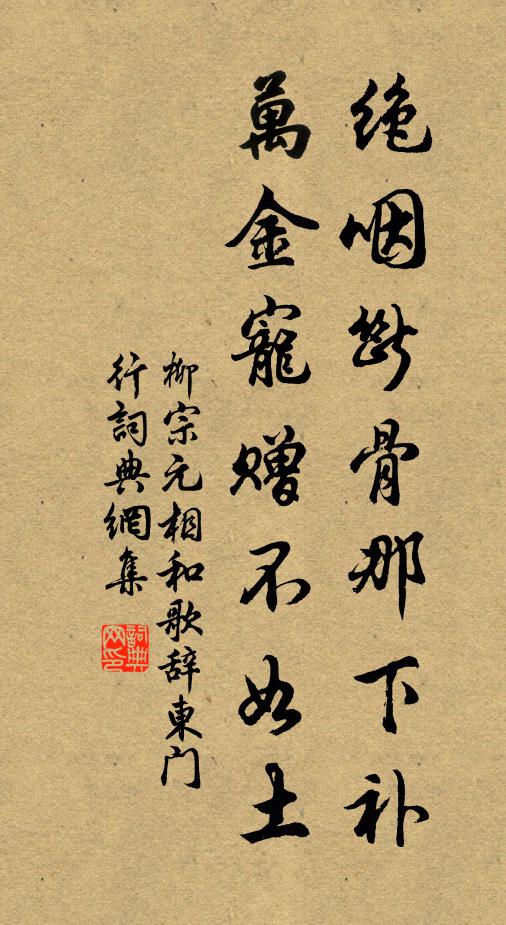 绝咽断骨那下补
萬金寵赠不如土
柳宗元相和歌辞東门
行詞典網集
詞典
网印